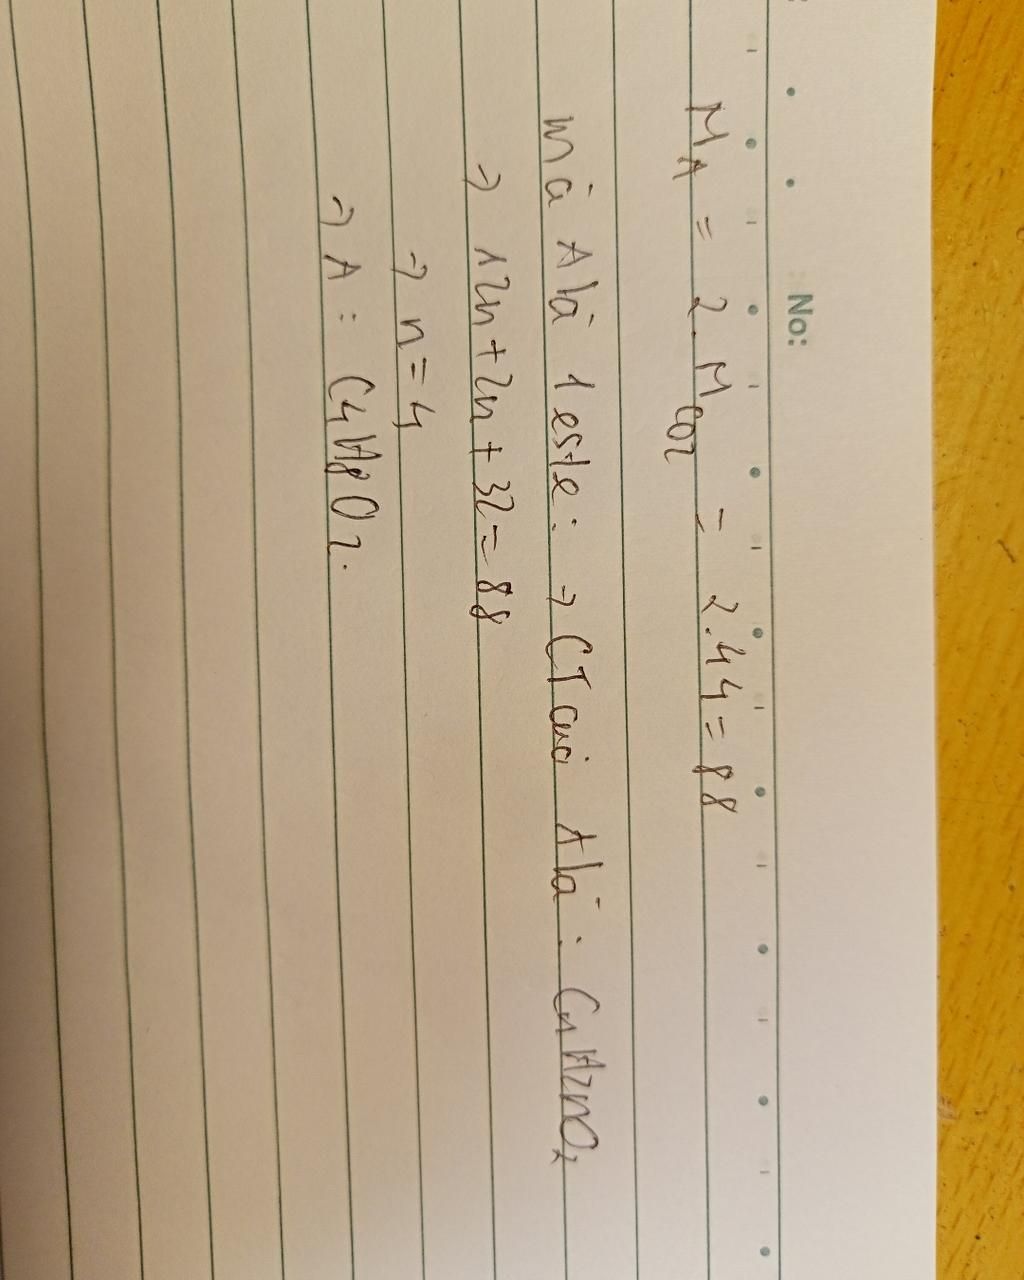 No:
M_A = 2. M_CO2 = 2.44 = 88
mà A là 1 este: → CT của A là: CnH2nO2
→ 12n + 2n + 32 = 88
→ n = 4
→ A: C4H8O2.